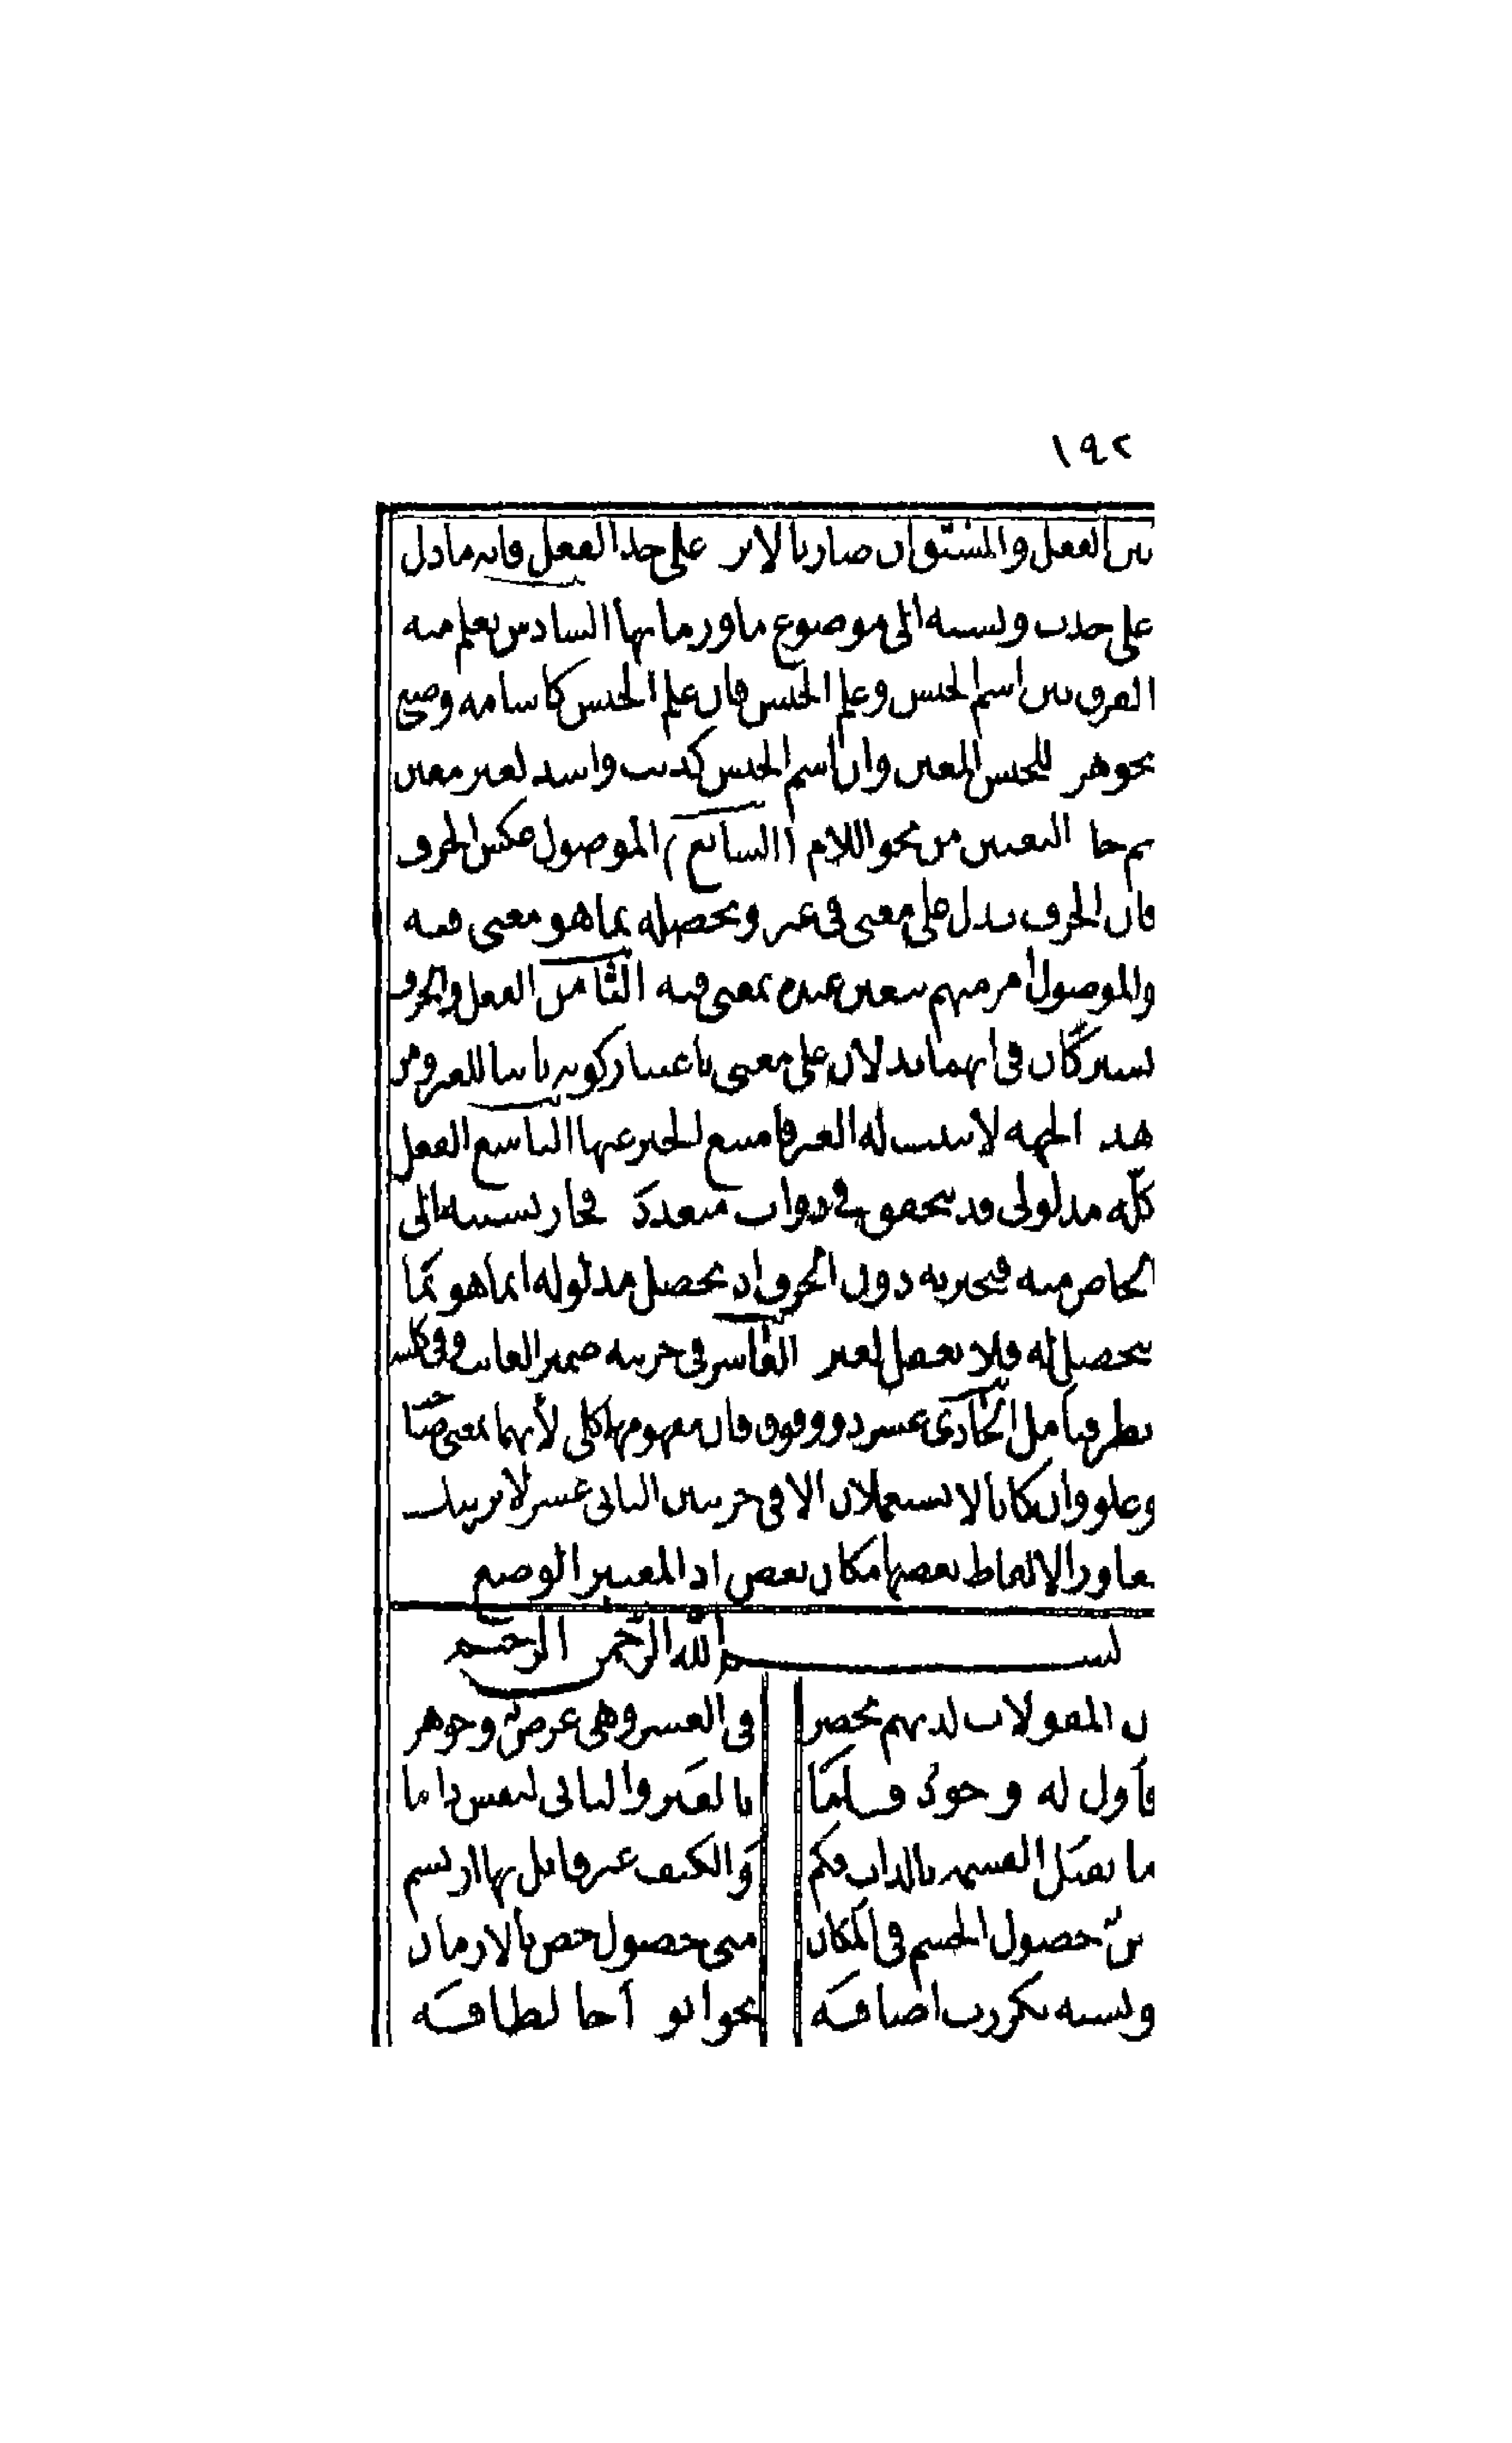 ١٩٢
بين الفعل والمشتق وان صار بالاير على حد الفعل فانه ما دل
على حدث ونسبة الى موضوع ما وزمانها السادس يعلم منه
الفرق بين اسم الجنس وعلم الجنس فان علم الجنس كاسامة وضع
بجوهر للجنس المعين وان اسم الجنس كذيب واسد لغير معين
ثم جا التعيين من نحو اللام (السابع) الموصول عكس الحرف
فان الحرف يدل على معنى في غير وتحصله بما هو معنى فيه
والموصول امر مبهم يتعين عندم بمعنى فيه الثامن الفعل والحرف
يشتركان في انهما يدلان على معنى باعتبار كونه ثابتا للغير ومن
هذ الجهة لا يثبت له الغير فامتنع الخبر عنها التاسع الفعل
كله مدلولى قد يتحقق في ذوات متعددة فجاز نسبته الى
الخاص منه فيخبر به دون الحرف اذ تحصل مدلوله انما هو بما
يتحصل له فلا يعقل لغير العاشر في جزيية ضمير الغايب وفى كليته
نظر فتامل الحادى عشر ذو وفوق فان مفهومهما كلى لأنهما بمعنى صاحب
وعلو وان كانا لا يستعملان الا في جزيين الثانى عشر لا يريبك
تعاور الالفاظ بعضها مكان بعض اذ المعتبر الوضع
بسم الله الرحمن الرحيم
ن المقولات لديهم تحصر في العشر وهى عرض وجوهر
فأول له وجود قاما بالغير والثانى لنفس داما
ما يقبل القسمة بالذات فكم والكيف غير قابل بها ارتسم
ين حصول الجسم في المكان متى حصول خص بالازمان
ونسبة تكررت اضافة نحو ابو أخا لطافة